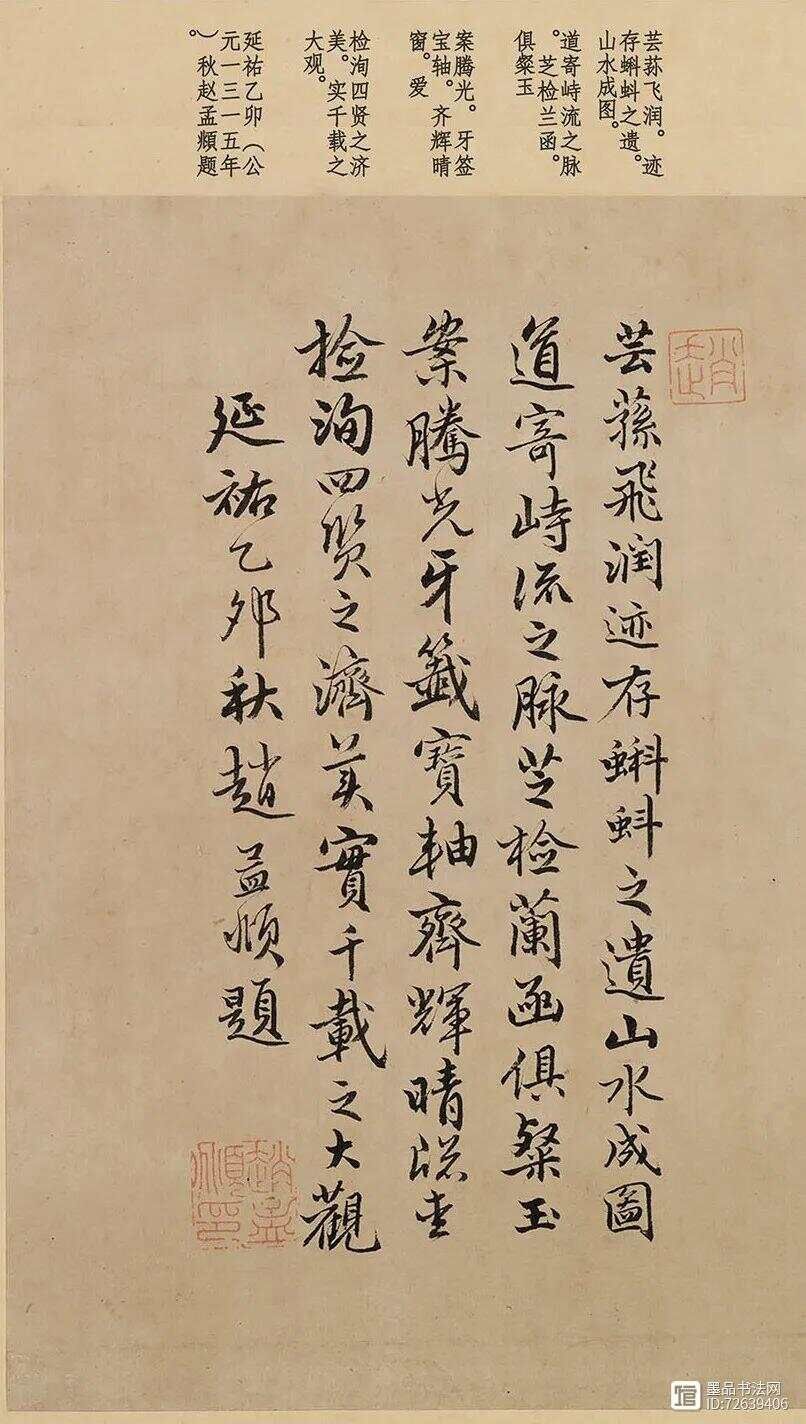 芸荪飞润。迹
存蝌蚪之遗。
山水成图。
道寄峙流之脉
。芝检兰函。
俱粲玉
案腾光。牙签
宝轴。齐辉晴
窗。爱
检洵四贤之济
美。实千载之
大观。
延祐乙卯（公
元一三一五年
）秋赵孟頫题
芸蓀飛润迹存蝌蚪之遺山水成圖
道寄峙流之脉芝检蘭函俱粲玉
案騰光牙籤寶軸齊輝晴牎
捡洵四贤之濟美實千載之大觀
延祐乙卯秋趙孟頫題
趙孟頫印
墨品书法网
ID:72639406